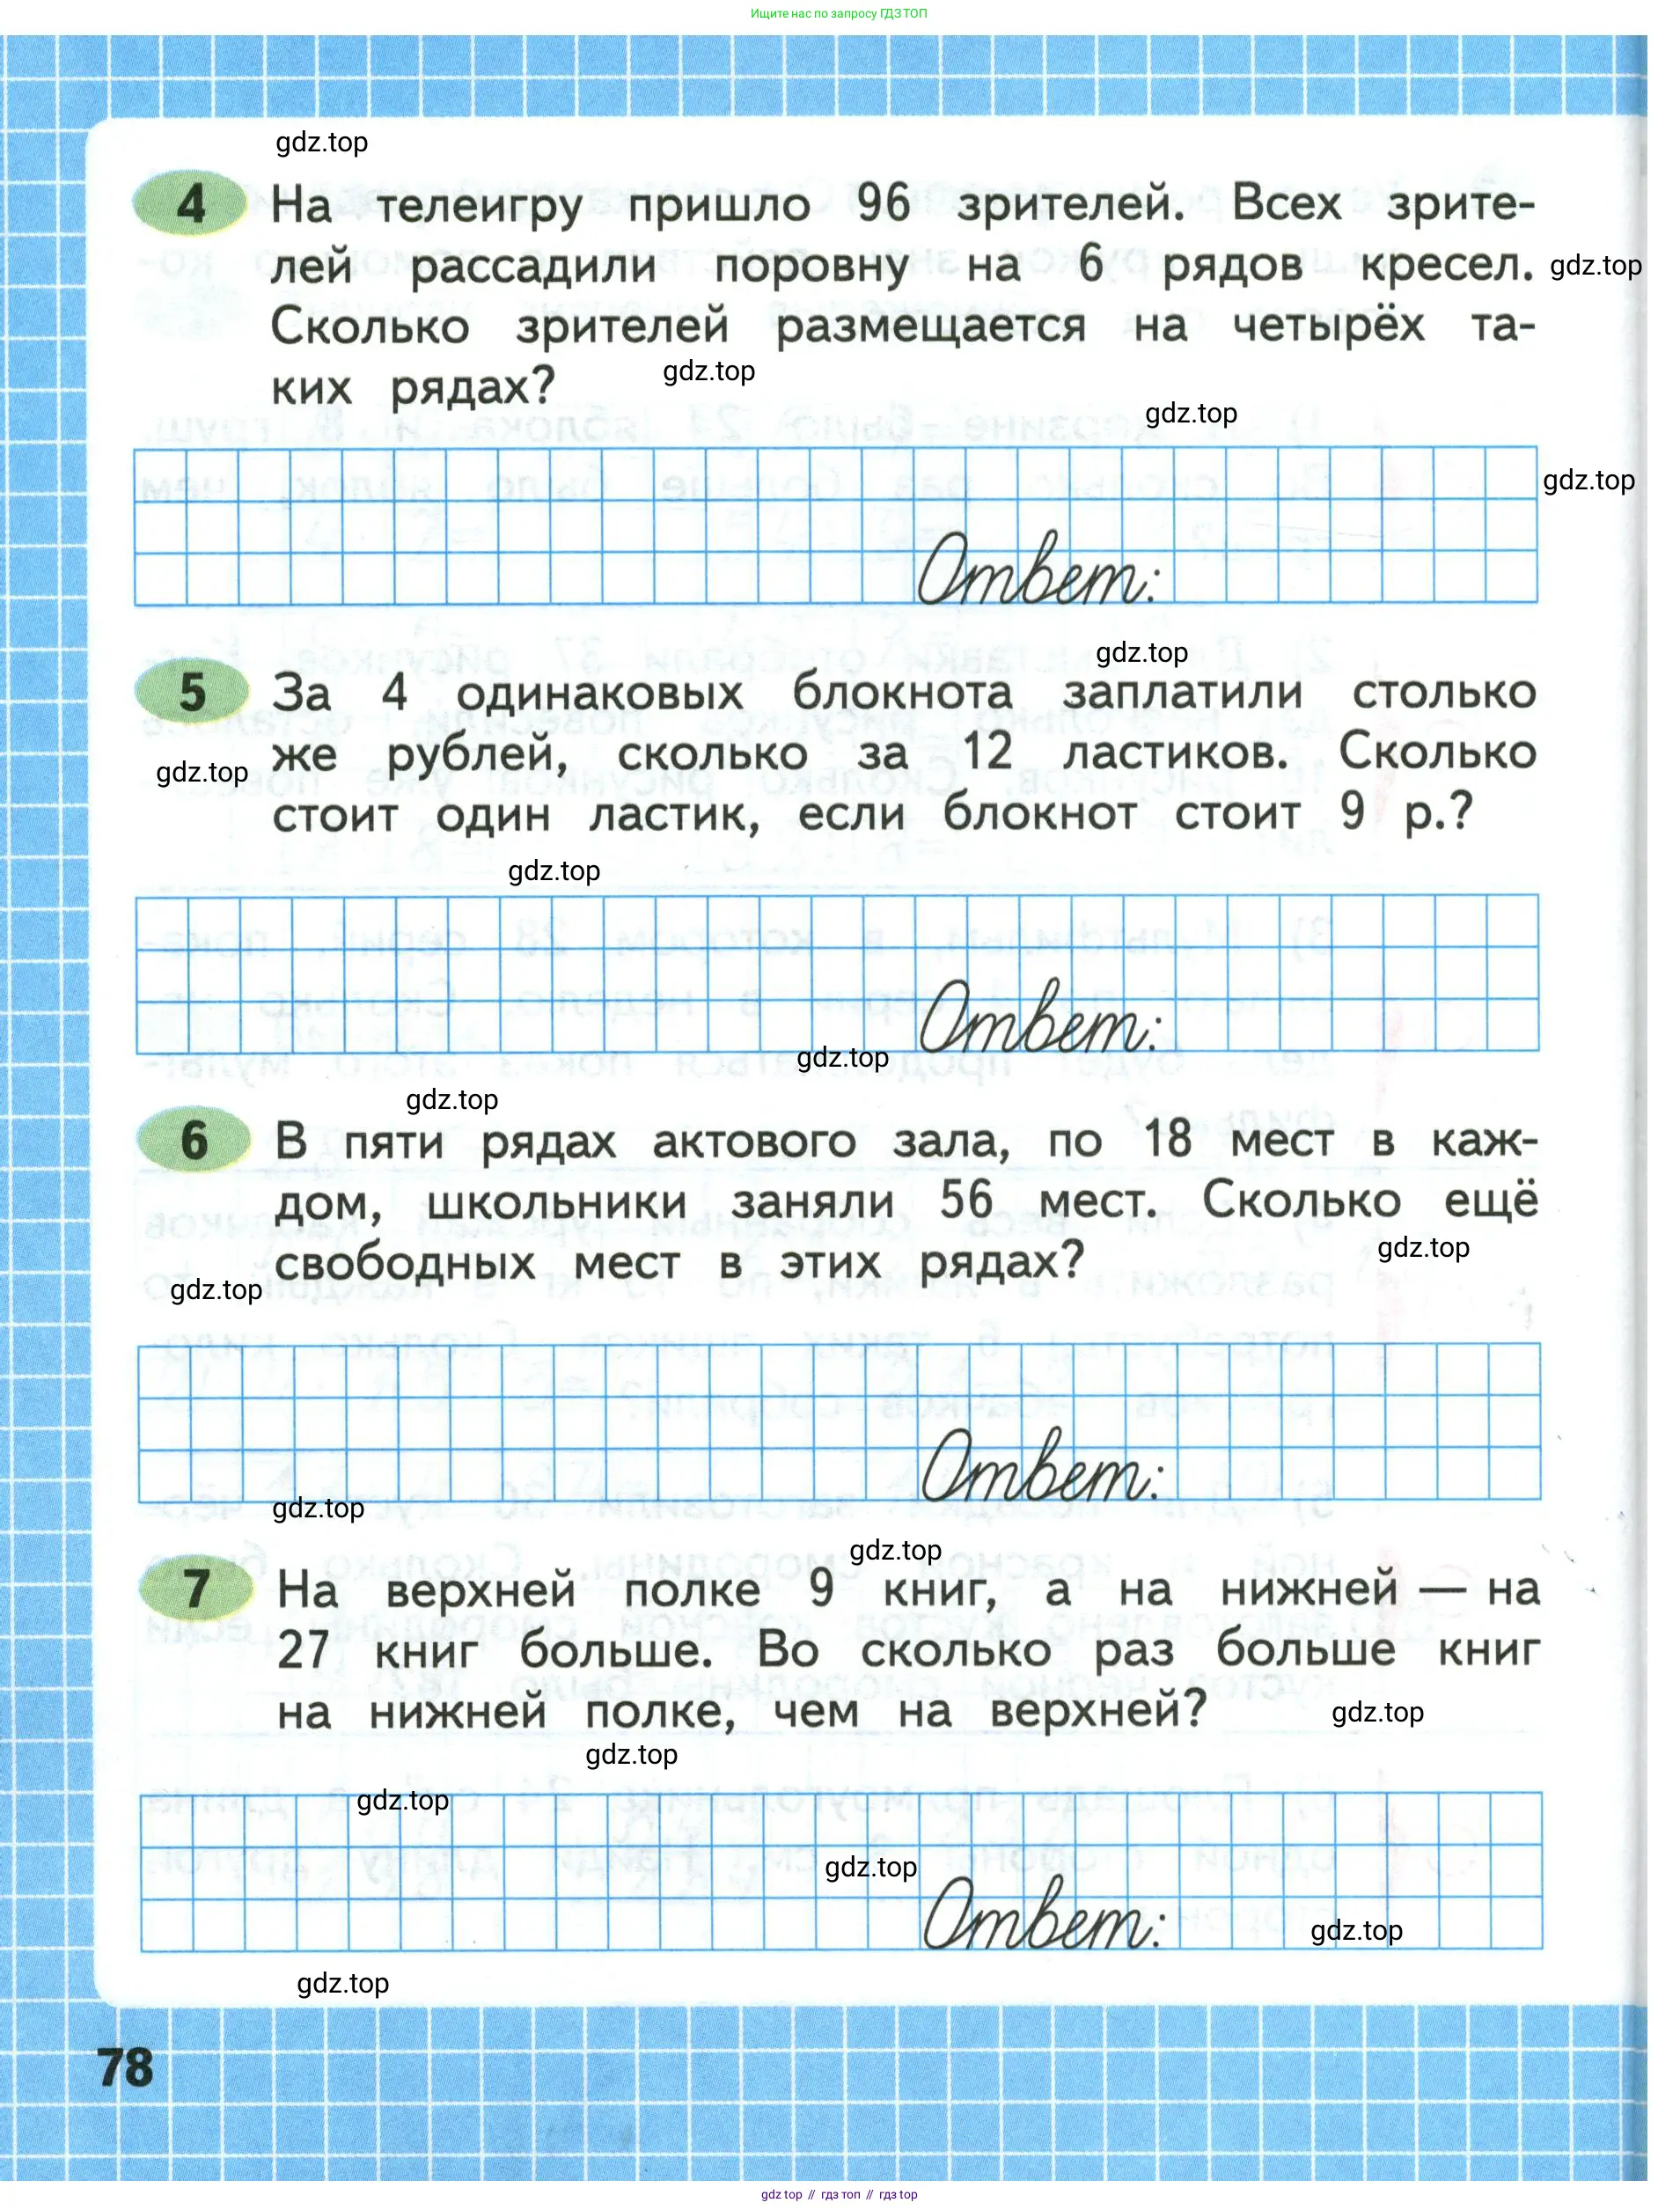 Ищите нас по запросу ГДЗ ТОП
gdz.top
4 На телеигру пришло 96 зрителей. Всех зрите-
лей рассадили поровну на 6 рядов кресел. gdz.top
Сколько зрителей размещается на четырёх та-
ких рядах? gdz.top
gdz.top
gdz.top
Ответ:
gdz.top
5 За 4 одинаковых блокнота заплатили столько
же рублей, сколько за 12 ластиков. Сколько
gdz.top
стоит один ластик, если блокнот стоит 9 р.?
gdz.top
Ответ:
gdz.top
gdz.top
6 В пяти рядах актового зала, по 18 мест в каж-
дом, школьники заняли 56 мест. Сколько ещё
свободных мест в этих рядах? gdz.top
gdz.top
Ответ:
gdz.top
gdz.top
7 На верхней полке 9 книг, а на нижней — на
27 книг больше. Во сколько раз больше книг
на нижней полке, чем на верхней? gdz.top
gdz.top
gdz.top
gdz.top
Ответ: gdz.top
gdz.top
78
gdz top // гдз топ // гдз top